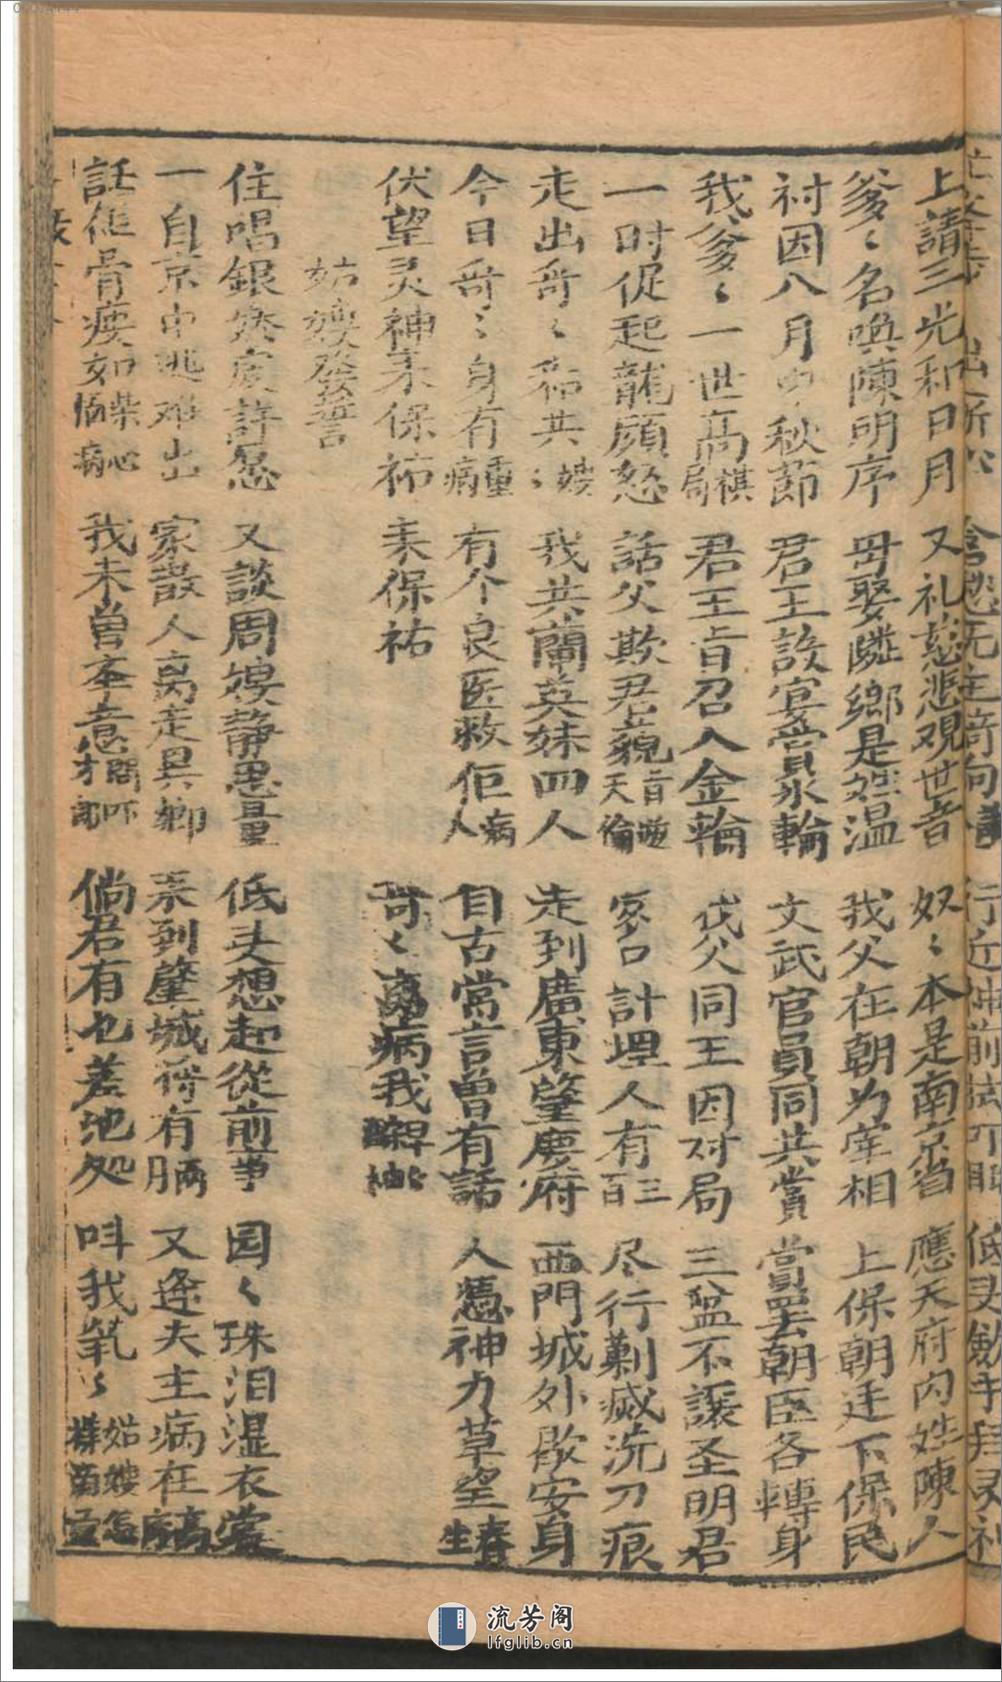 上請三光和日月　又礼慈悲观世音　奴〻本是南京省　應天府内姓陳人
爹〻名唤陳明序　毋娶隣鄉是　温　我父在朝为宰相　上保朝廷下保民
村因八月中秋節　君王設宴賞氷輪　文武官員同共賞　賞罢朝臣各轉身
我爹〻一世高棋局　君王旨召入金輪　我父同王因对局　三盆不讓圣明君
一时促起龍顔怒　話父欺君藐　天倫　家口計埋人有三百　尽行剿滅洗刀痕
走出哥〻和共〻嫂　我共蘭英妹四人　走到廣東肇慶府　西門城外歇安身
今日哥〻身有重病　有个良医救佢病人　自古常言曽有話　人憑神力草望春生
伏望灵神来保祐　来保祐　哥〻离病我
姑嫂發誓
住唱銀　度許愿　又談周嫂静思量　低头想起從前事　园〻珠泪湿衣裳
一自京中逃难出　家散人离走異鄉　来到肇城将有　又逢夫主病在高床
話佢骨瘦如柴心　病　我未曽奉意問吓　倘君有乜差池处　呌我　〻姑嫂怎　
流芳阁
lfglib.cn